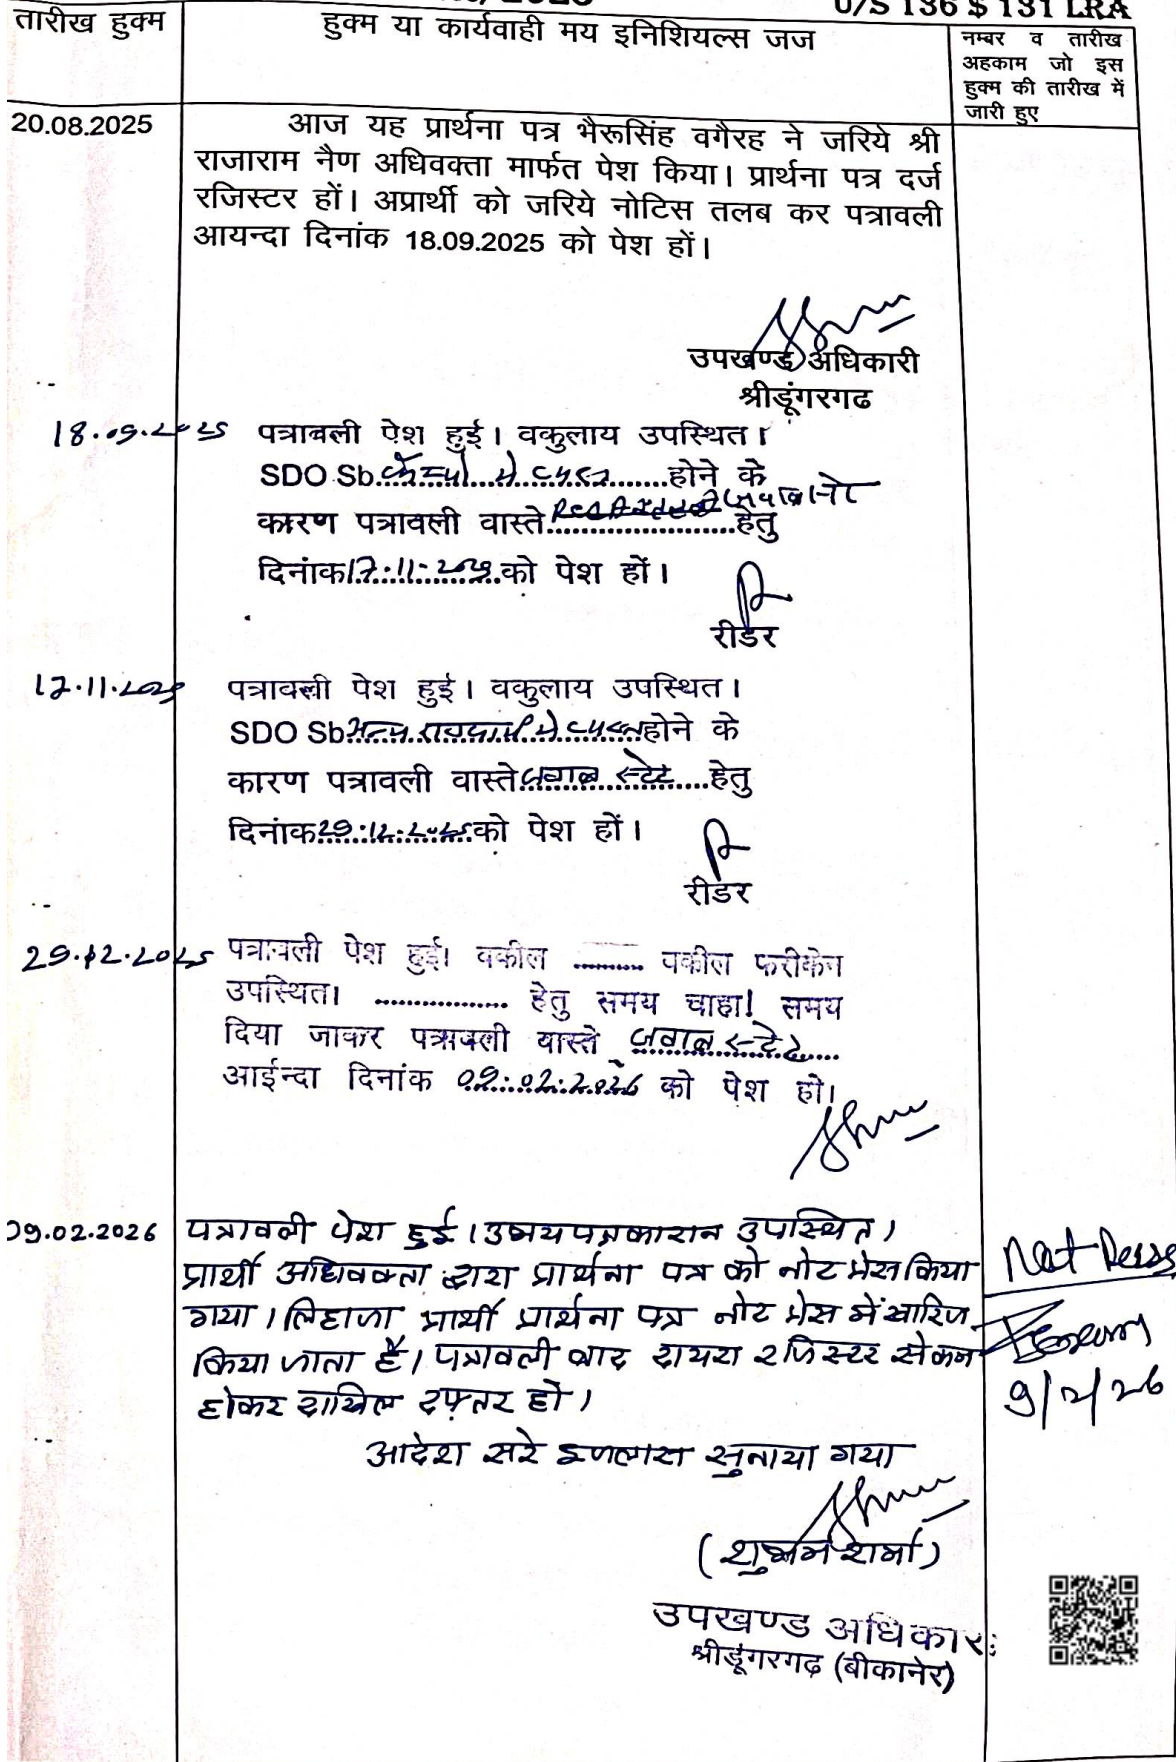 U/S 136 $ 131 LRA
तारीख हुक्म
हुक्म या कार्यवाही मय इनिशियल्स जज
नम्बर व तारीख
अहकाम जो इस
हुक्म की तारीख में
जारी हुए
20.08.2025
आज यह प्रार्थना पत्र भैरूसिंह वगैरह ने जरिये श्री
राजाराम नैण अधिवक्ता मार्फत पेश किया। प्रार्थना पत्र दर्ज
रजिस्टर हों। अप्रार्थी को जरिये नोटिस तलब कर पत्रावली
आयन्दा दिनांक 18.09.2025 को पेश हों।
उपखण्ड अधिकारी
श्रीडूंगरगढ
18.09.2025 पत्रावली पेश हुई। वकुलाय उपस्थित।
SDO Sb. कैम्पो मे व्यस्त होने के
कारण पत्रावली वास्ते हेतु
दिनांक 17.11.2025 को पेश हों।
रीडर
17.11.2025 पत्रावली पेश हुई। वकुलाय उपस्थित।
SDO Sb. अन्य राजकार्य मे व्यस्त होने के
कारण पत्रावली वास्ते जवाब स्टे हेतु
दिनांक 29.12.2025 को पेश हों।
रीडर
29.12.2025 पत्रावली पेश हुई। वकील ......... वकील फरीकेन
उपस्थित। ................. हेतु समय चाहा! समय
दिया जाकर पत्रावली वास्ते जवाब स्टे
आईन्दा दिनांक 09.02.2026 को पेश हो।
09.02.2026 पत्रावली पेश हुई। उभयपक्षकारान उपस्थित।
प्रार्थी अधिवक्ता द्वारा प्रार्थना पत्र को नोट प्रेस किया
गया। लिहाजा प्रार्थी प्रार्थना पत्र नोट प्रेस में खारिज
किया जाता है। पत्रावली बाद दायरा रजिस्टर से कम
होकर दाखिल दफ्तर हो।
आदेश सरे इजलास सुनाया गया
Not Press
9/2/26
(शुभम शर्मा)
उपखण्ड अधिकारी
श्रीडूंगरगढ़ (बीकानेर)